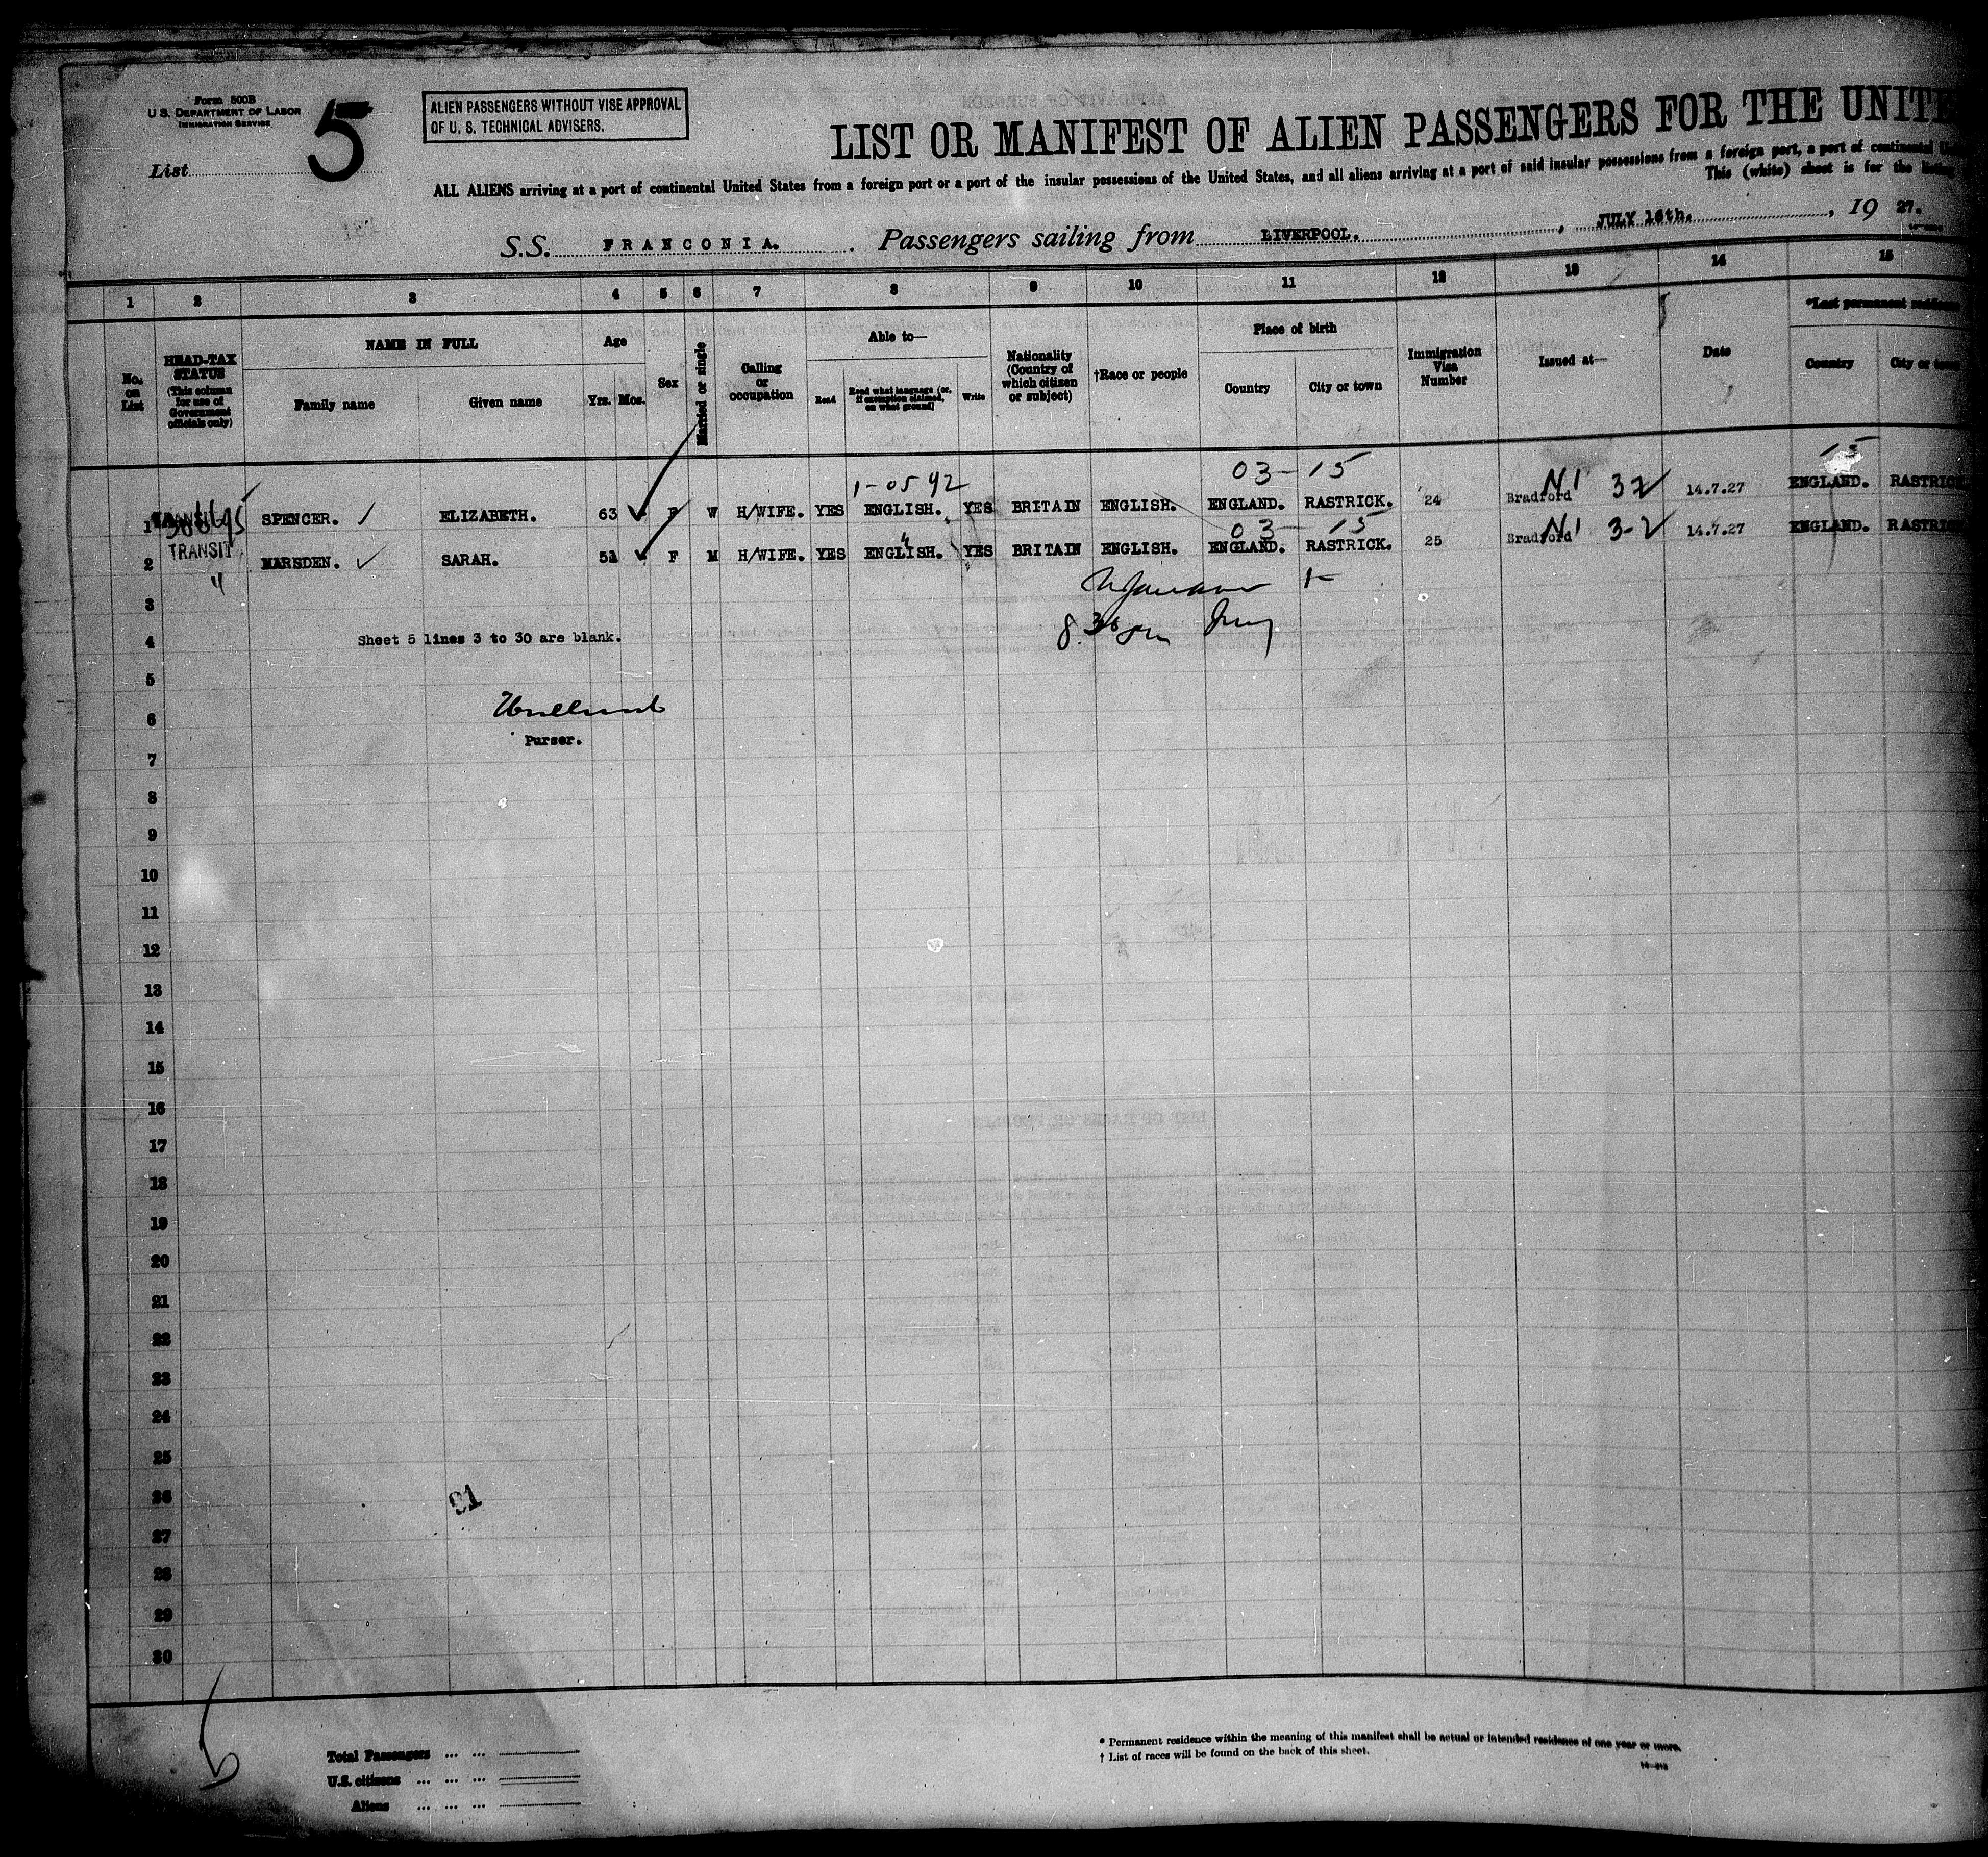 Form 500B
U. S. DEPARTMENT OF LABOR
IMMIGRATION SERVICE
List 5
ALIEN PASSENGERS WITHOUT VISE APPROVAL
OF U. S. TECHNICAL ADVISERS.
LIST OR MANIFEST OF ALIEN PASSENGERS FOR THE UNITE
ALL ALIENS arriving at a port of continental United States from a foreign port or a port of the insular possessions of the United States, and all aliens arriving at a port of said insular possessions from a foreign port, a port of continental
This (white) sheet is for the listing
S.S. FRANCONIA. Passengers sailing from LIVERPOOL. , JULY 16th. , 19 27.
1 2 3 4 5 6 7 8 9 10 11 12 13 14 15
No. on List
HEAD-TAX STATUS
(This column for use of Government officials only)
NAME IN FULL
Family name Given name
Age
Yrs. Mos.
Sex
Married or single
Calling or occupation
Able to—
Read
Read what language (or, if exemption claimed, on what ground)
Write
Nationality (Country of which citizen or subject)
†Race or people
Place of birth
Country City or town
Immigration Visa Number
Issued at—
Date
*Last permanent
Country City or
1-0592 03-15 15
1 TRANSIT SPENCER. ELIZABETH. 63 F W H/WIFE. YES ENGLISH. YES BRITAIN ENGLISH. ENGLAND. RASTRICK. 24 Bradford 32 14.7.27 ENGLAND.
03 15
2 TRANSIT MARSDEN. SARAH. 51 F M H/WIFE. YES ENGLISH. YES BRITAIN ENGLISH. ENGLAND. RASTRICK. 25 Bradford 3-2 14.7.27 ENGLAND.
3
4 Sheet 5 lines 3 to 30 are blank.
5
6
Purser.
7
8
9
10
11
12
13
14
15
16
17
18
19
20
21
22
23
24
25
26 91
27
28
29
30
* Permanent residence within the meaning of this manifest shall be actual or intended residence of one year or more.
† List of races will be found on the back of this sheet.
Total Passengers ... ...
U.S. citizens ... ... ...
Aliens ... ... ...